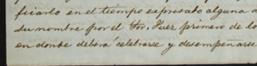 ficarlo en el tiempo expresado alguna d
su nombre por el Sor. Juez primero de lo
en donde debera celebrarse y desempeñarse